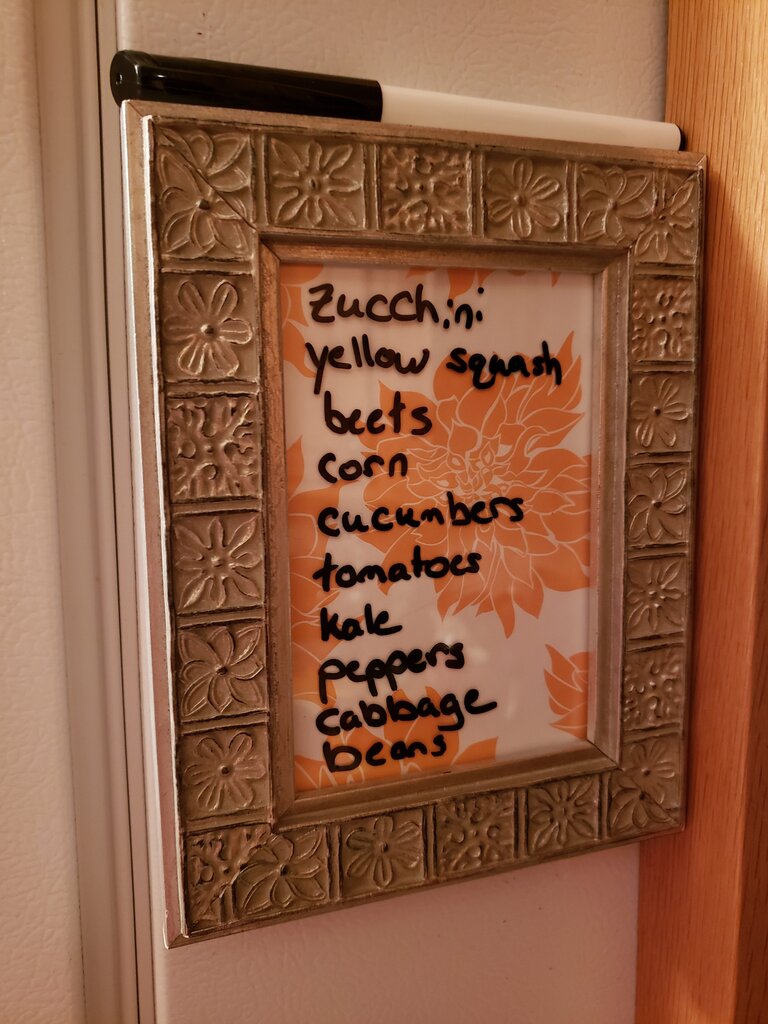 Zucchini
yellow squash
beets
corn
cucumbers
tomatoes
kale
peppers
cabbage
beans